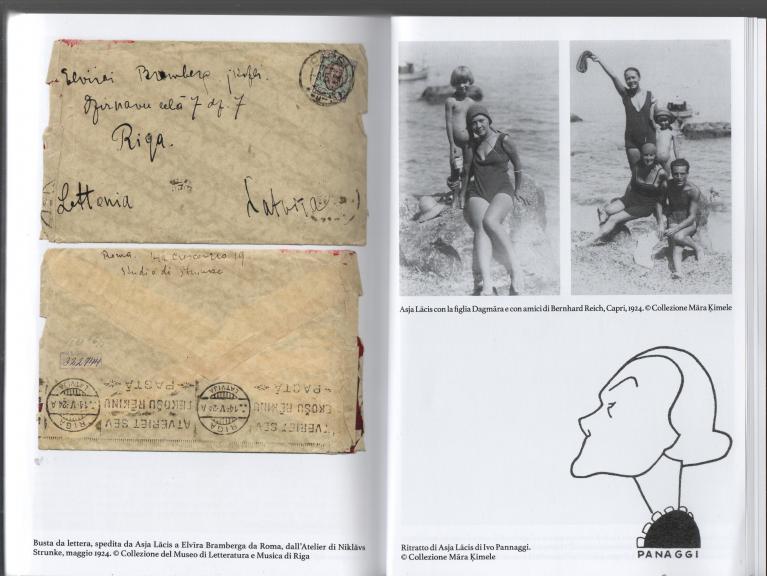 Elvirei Bramberg
Dzirnavu ielā 7 dz. 7
Riga.
Lettonia Latvija
Roma. Via Crescenzio 19
Studio di Strunke
322744
RIGA LATVIJA
15·V·24 A
ATVERIET SEV
TEKOŠU RĒĶINU
PASTĀ
RIGA LATVIJA
15·V·24 A
TVERIET SEV
EKOŠU RĒĶINU
PASTĀ
Busta da lettera, spedita da Asja Lācis a Elvīra Bramberga da Roma, dall'Atelier di Niklāvs
Strunke, maggio 1924. © Collezione del Museo di Letteratura e Musica di Riga
Asja Lācis con la figlia Dagmāra e con amici di Bernhard Reich, Capri, 1924. © Collezione Māra Ķimele
PANAGGI
Ritratto di Asja Lācis di Ivo Pannaggi.
© Collezione Māra Ķimele